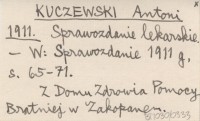 KUCZEWSKI Antoni
1911. Sprawozdanie lekarskie.
- W: Sprawozdanie 1911 g,
s. 65-71.
Z Domu Zdrowia Pomocy
Bratniej w Zakopanem.